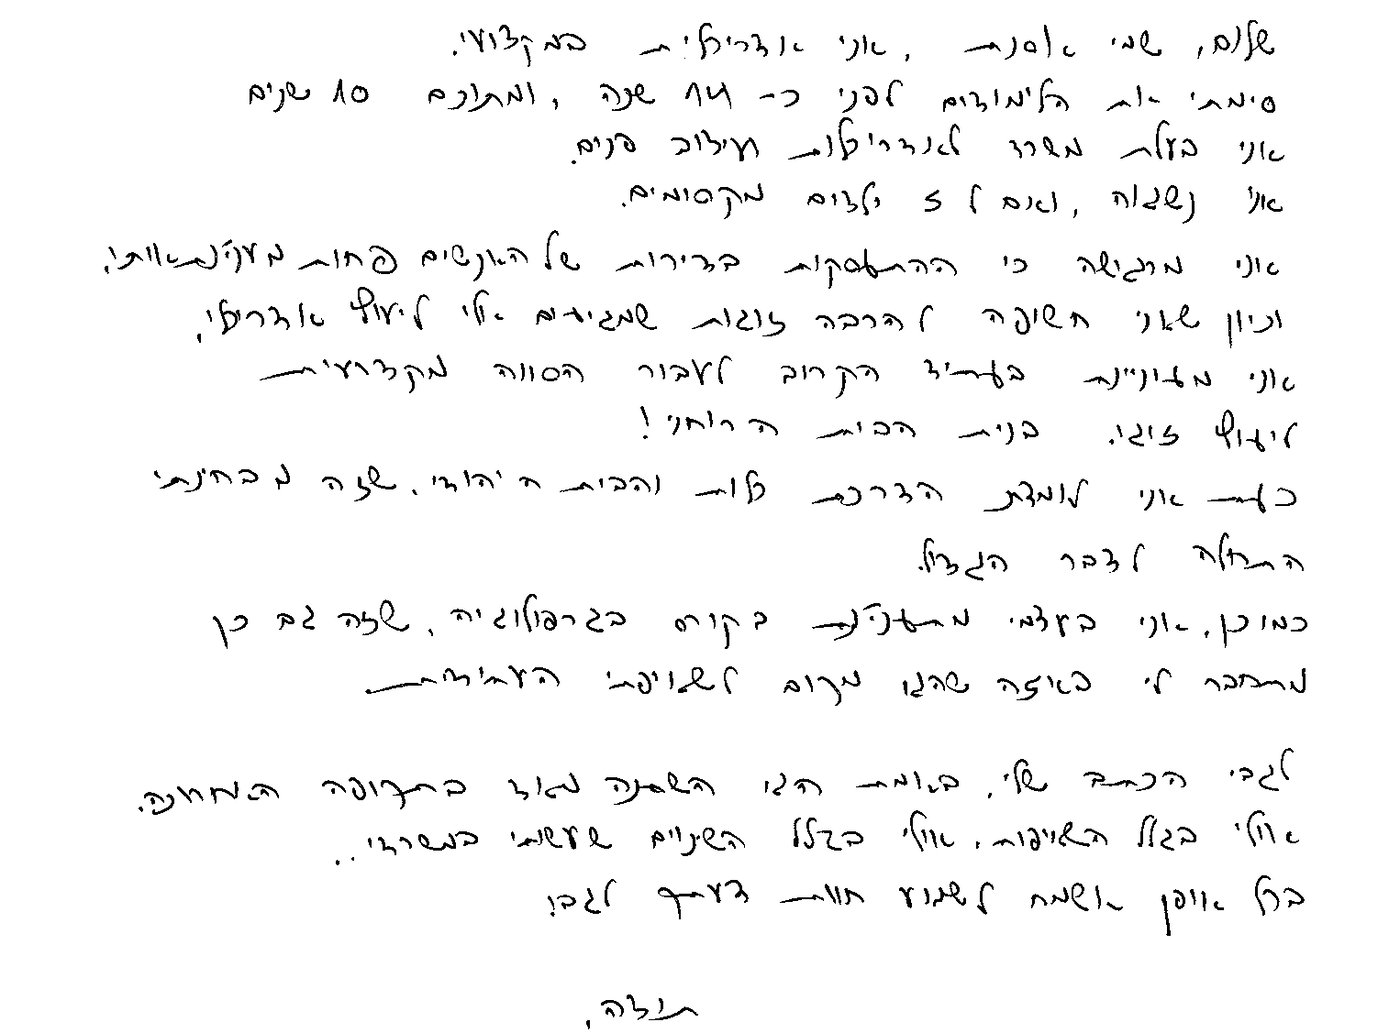 שלום, שמי אוסנת, אני אדריכלית במקצועי.
סימתי את הלימודים לפני כ- 14 שנה, ומתוכם 10 שנים
אני בעלת משרד לאדריכלות ועיצוב פנים.
אני נשואה, ואם ל 3 ילדים מקסימים.
אני מרגישה כי ההתעסקות בדירות של האנשים פחות מענינת אותי,
וכיון שאני חשופה להרבה זוגות שמגיעים אלי ליעוץ אדריכלי,
אני מעוניינת בעתיד הקרוב לעבור הסווה מקצועית
ליעוץ זוגי. בנית הבית הרוחני!
כעת אני לומדת הדרכת כלות והבית היהודי. שזה מבחינתי
התחלה לדבר הגדול.
כמו כן, אני בעצמי מתענינת בקורס בגרפולוגיה, שזה גם כן
מתחבר לי באיזה שהוא מקום לשאיפתי העתידית.
לגבי הכתב שלי, באמת הוא השתנה מאוד בתקופה האחרונה.
אולי בגלל השאיפות, אולי בגלל השינוים שעשתי במשרדי..
בכל אופן אשמח לשמוע חוות דעתך לגבי.
תודה,